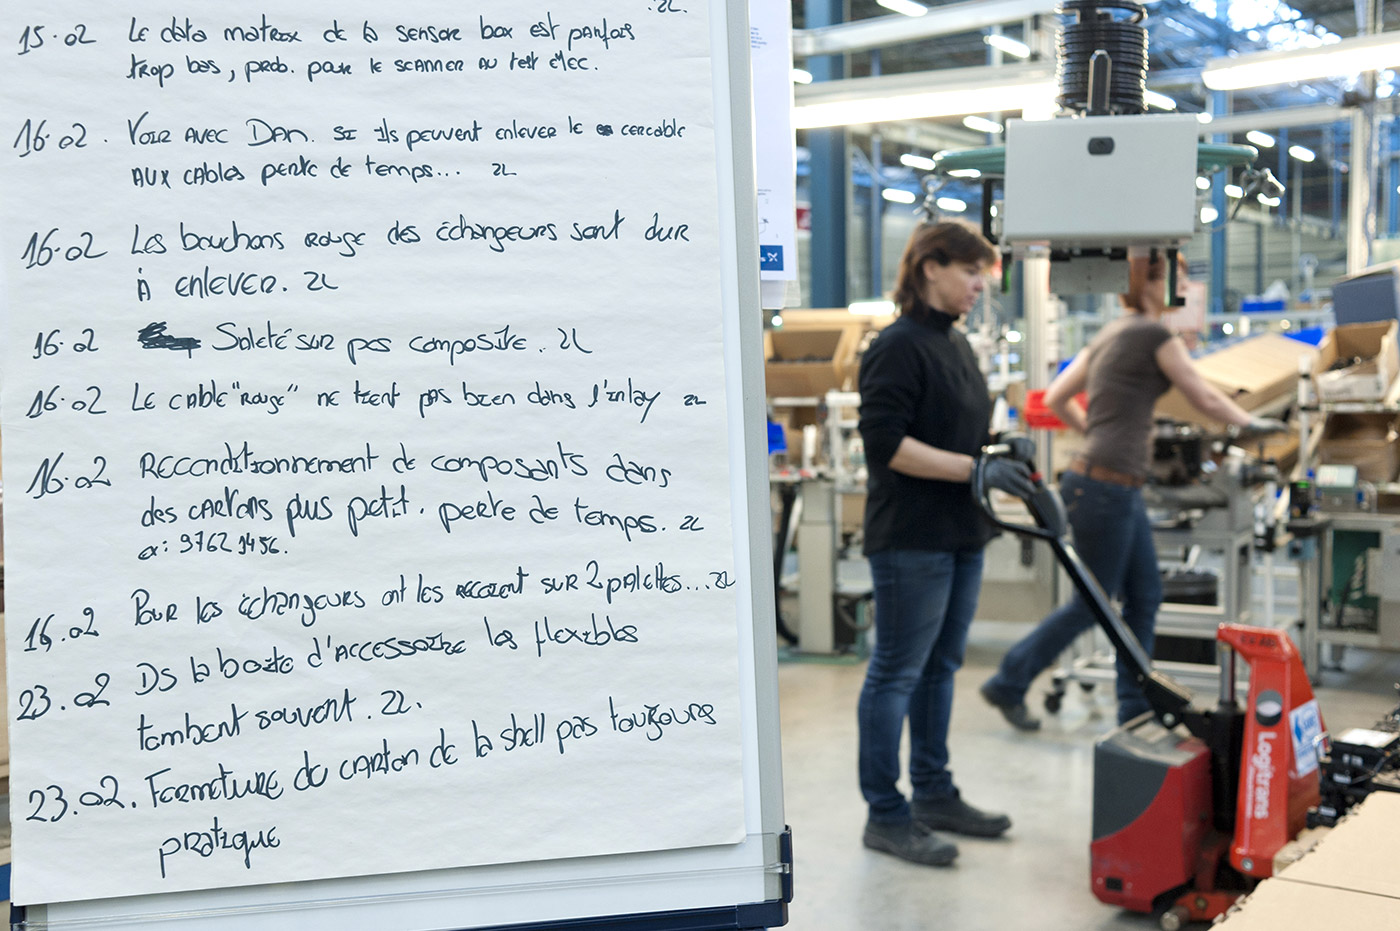 2L.
15.02 Le data matrix de la sensor box est parfois
trop bas, prob. pour le scanner au test élec.
16.02. Voir avec Dan. si ils peuvent enlever le cercable
aux cables perte de temps... 2L
16.02 Les bouchons rouge des échangeurs sont dur
à enlever. 2L
16.02 Saleté sur pas composite. 2L
16.02 Le cable "rouge" ne tient pas bien dans l'inlay 2L
16.02 Reconditionnement de composants dans
des cartons plus petit. perte de temps. 2L
ex: 97621456.
16.02 Pour les échangeurs ont les reçoient sur 2 palettes... 2L
23.02 Ds la boite d'accessoire les flexibles
tombent souvent. 2L.
23.02. Fermeture du carton de la shell pas toujours
pratique
Logitrans